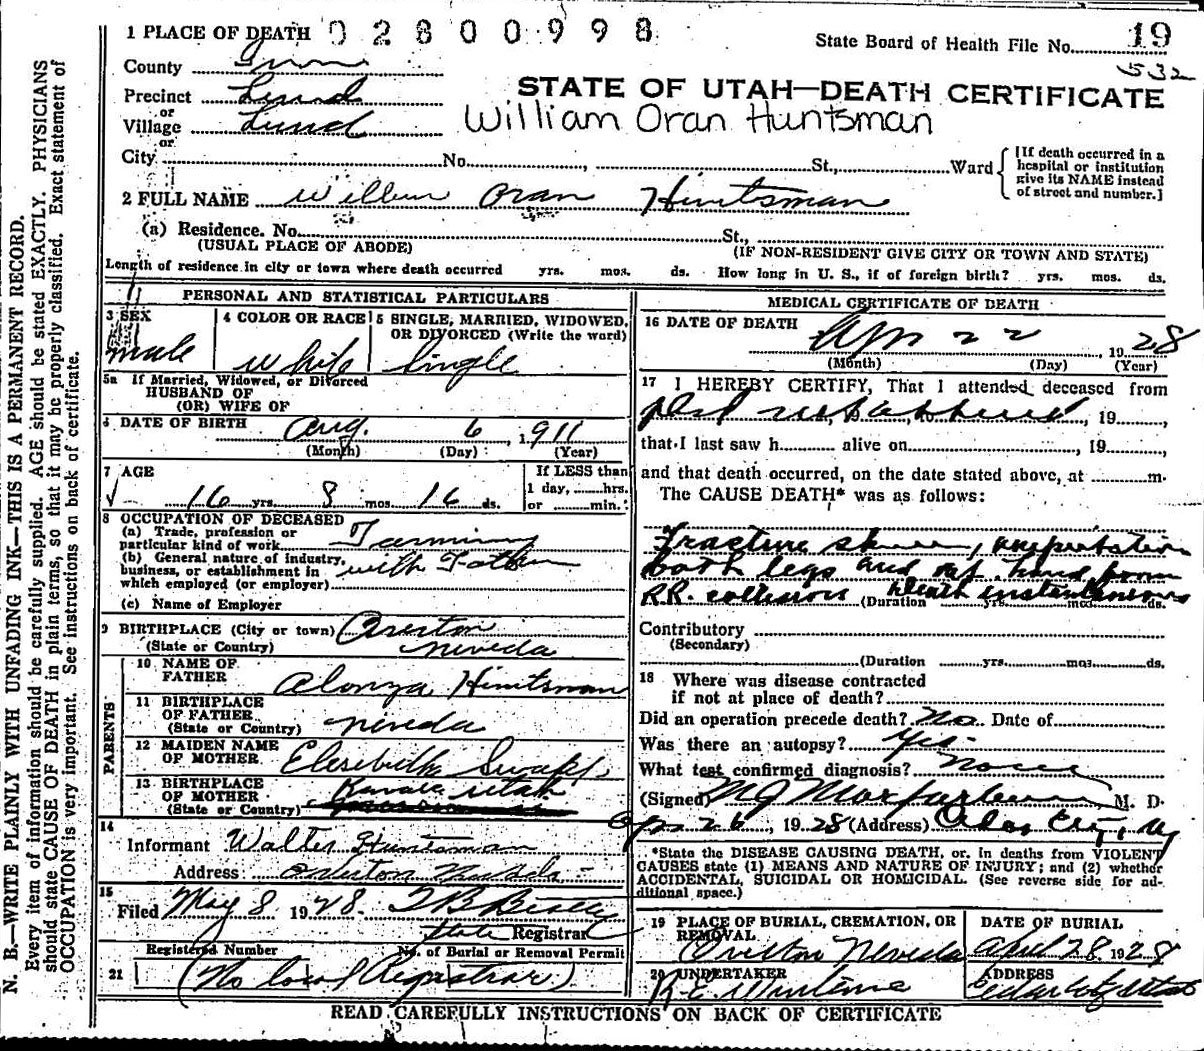 1 PLACE OF DEATH 02800998
State Board of Health File No. 19
532
County Iron
Precinct Lund
or
Village Lund
or
STATE OF UTAH—DEATH CERTIFICATE
William Oran Huntsman
City No. St., Ward
[If death occurred in a hospital or institution give its NAME instead of street and number.]
2 FULL NAME Oran Huntsman
(a) Residence. No. St.,
(USUAL PLACE OF ABODE) (IF NON-RESIDENT GIVE CITY OR TOWN AND STATE)
Length of residence in city or town where death occurred yrs. mos. ds. How long in U. S., if of foreign birth? yrs. mos. ds.
PERSONAL AND STATISTICAL PARTICULARS
3 SEX
male
4 COLOR OR RACE
white
5 SINGLE, MARRIED, WIDOWED, OR DIVORCED (Write the word)
Single
5a If Married, Widowed, or Divorced
HUSBAND OF
(OR) WIFE OF
6 DATE OF BIRTH Aug. 6, 1911
(Month) (Day) (Year)
7 AGE
16 yrs. 8 mos. 16 ds.
If LESS than
1 day, hrs.
or min.
8 OCCUPATION OF DECEASED
(a) Trade, profession or
particular kind of work Farming
(b) General nature of industry,
business, or establishment in
which employed (or employer) with Father
(c) Name of Employer
9 BIRTHPLACE (City or town)
(State or Country) Neveda
PARENTS
10 NAME OF
FATHER Alonza Huntsman
11 BIRTHPLACE
OF FATHER
(State or Country) Neveda
12 MAIDEN NAME
OF MOTHER Elesibeth Swapp
13 BIRTHPLACE
OF MOTHER
(State or Country) Kanab Utah
14
Informant Walter Huntsman
Address Nevada
15
Filed May 8 1928
State Registrar
Registered Number No. of Burial or Removal Permit
21 (No local Registrar)
MEDICAL CERTIFICATE OF DEATH
16 DATE OF DEATH
Apr 22, 1928
(Month) (Day) (Year)
17 I HEREBY CERTIFY, That I attended deceased from
did not attend, 19
that I last saw h alive on, 19
and that death occurred, on the date stated above, at m.
The CAUSE DEATH* was as follows:
Fracture skull, amputation
both legs and hand from
R.R. collision (Duration Death instantaneous yrs. mos. ds.
Contributory
(Secondary)
(Duration yrs. mos. ds.
18 Where was disease contracted
if not at place of death?
Did an operation precede death? No. Date of
Was there an autopsy? Yes
What test confirmed diagnosis? None
(Signed) M. D.
Apr 26, 1928 (Address) Cedar City, U
*State the DISEASE CAUSING DEATH, or. in deaths from VIOLENT
CAUSES state (1) MEANS AND NATURE OF INJURY; and (2) whether
ACCIDENTAL, SUICIDAL OR HOMICIDAL. (See reverse side for additional space.)
19 PLACE OF BURIAL, CREMATION, OR
REMOVAL
Neveda
DATE OF BURIAL
April 28 1928
20 UNDERTAKER
ADDRESS
Cedar City Utah
READ CAREFULLY INSTRUCTIONS ON BACK OF CERTIFICATE
N. B.—WRITE PLAINLY WITH UNFADING INK—THIS IS A PERMANENT RECORD.
Every item of information should be carefully supplied. AGE should be stated EXACTLY. PHYSICIANS
should state CAUSE OF DEATH in plain terms, so that it may be properly classified. Exact statement of
OCCUPATION is very important. See instructions on back of certificate.